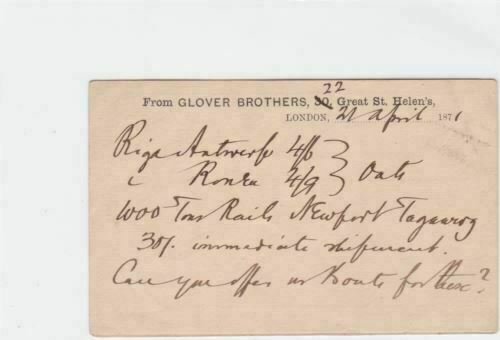 22
From GLOVER BROTHERS, 30, Great St. Helen's,
LONDON, 21 April 1871
Riga Antwerp 4/6 } Oats
" Rouen 4/9
1000 Tons Rails Newport Taganrog
30/. immediate shipment.
Can you offer us boats for these?